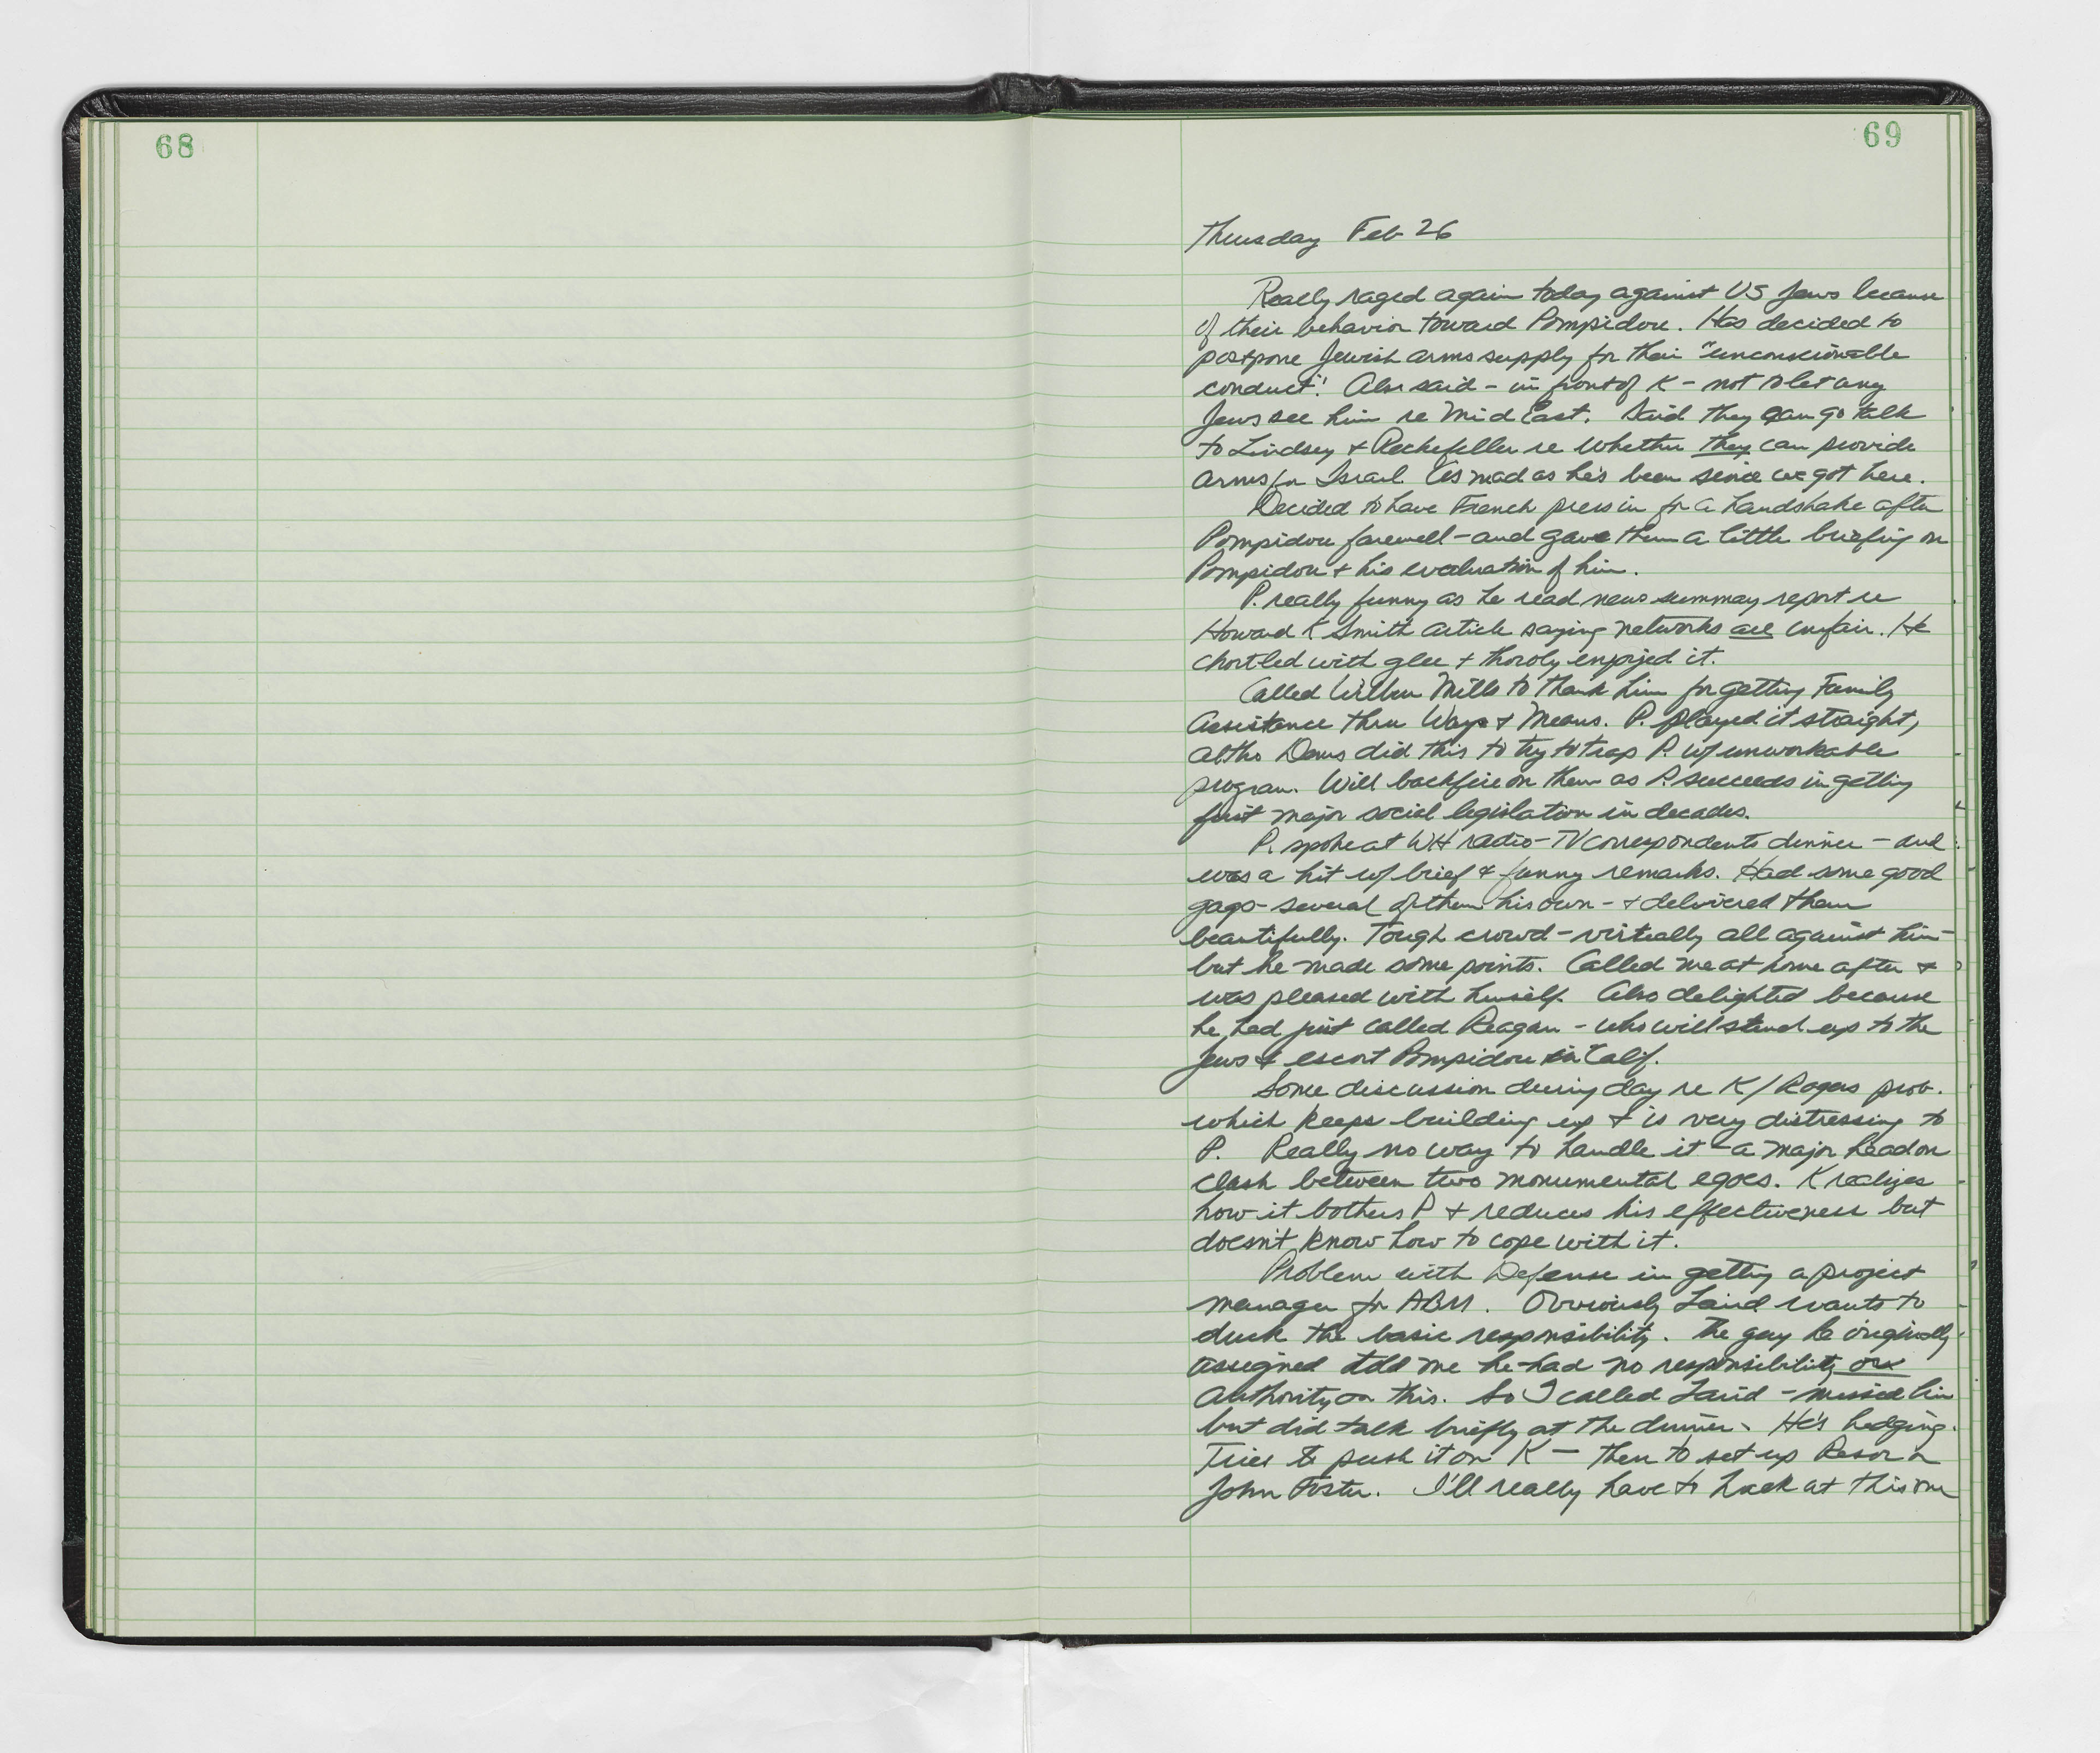 68
69
Thursday Feb 26
Really raged again today against US Jews because
of their behavior toward Pompidou. Has decided to
postpone Jewish arms supply for their "unconscionable
conduct". Also said - in front of K - not to let any
Jews see him re Mid East. Said they can go talk
to Lindsey + Rockefeller re whether they can provide
arms for Israel. As mad as he's been since we got here.
Decided to have French press in for a handshake after
Pompidou farewell - and gave them a little briefing on
Pompidou + his evaluation of him.
P. really funny as he read news summay report re
Howard K Smith article saying networks are unfair. He
chortled with glee + thoroly enjoyed it.
Called Wilbur Mills to thank him for getting Family
Assistance thru Ways + Means. P. played it straight,
altho Dems did this to try to trap P. w/ unworkable
program. Will backfire on them as P. succeeds in getting
first major social legislation in decades.
P. spoke at WH radio-TV correspondents dinner - and
was a hit w/ brief + funny remarks. Had some good
gags - several of them his own - + delivered them
beautifully. Tough crowd - virtually all against him -
but he made some points. Called me at home after +
was pleased with himself. Also delighted because
he had just called Reagan - who will stand up to the
Jews + escort Pompidou in Calif.
Some discussion during day re K/Rogers prob.
which keeps building up + is very distressing to
P. Really no way to handle it - a major headon
clash between two monumental egoes. K realizes
how it bothers P + reduces his effectiveness but
doesn't know how to cope with it.
Problem with Defense in getting a project
manager for ABM. Obviously Laird wants to
duck the basic responsibility. The guy he originally
assigned told me he had no responsibility or
authority on this. So I called Laird - missed him
but did talk briefly at the dinner. He's hedging.
Tries to push it on K - then to set up Resor or
John Foster. I'll really have to hack at this one